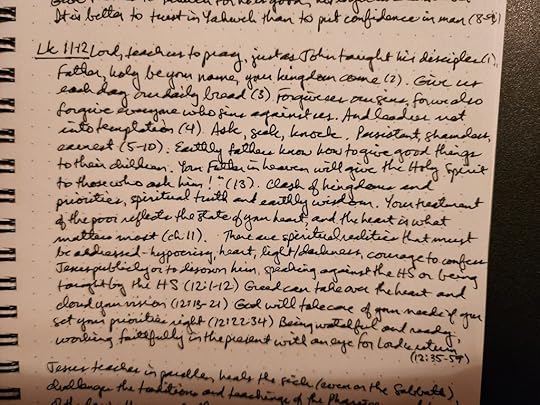 It is better to trust in Yahweh than to put confidence in man (8-9)
Lk 11-12 Lord, teach us to pray, just as John taught his disciples (1).
Father, holy be your name, your kingdom come (2). Give us
each day our daily bread (3) Forgive us our sins, for we also
forgive everyone who sins against us. And lead us not
into temptation (4). Ask, seek, knock. Persistent, shameless,
earnest (5-10). Earthly fathers know how to give good things
to their children. Your Father in heaven will give the Holy Spirit
to those who ask him!" (13). Clash of kingdoms and
priorities, spiritual truth and earthly wisdom. Your treatment
of the poor reflects the state of your heart, and the heart is what
matters most (ch. 11). There are spiritual realities that must
be addressed - hypocrisy, heart, light/darkness, courage to confess
Jesus publicly or to disown him, speaking against the HS or being
taught by the HS (12:1-12) Greed can take over the heart and
cloud your vision (12:13-21) God will take care of your needs if you
set your priorities right (12:22-34) Being watchful and ready,
working faithfully in the present with an eye for Lord's return
(12:35-59)
Jesus teaches in parables, heals the sick (even on the Sabbath),
challenges the traditions and teachings of the Pharisees